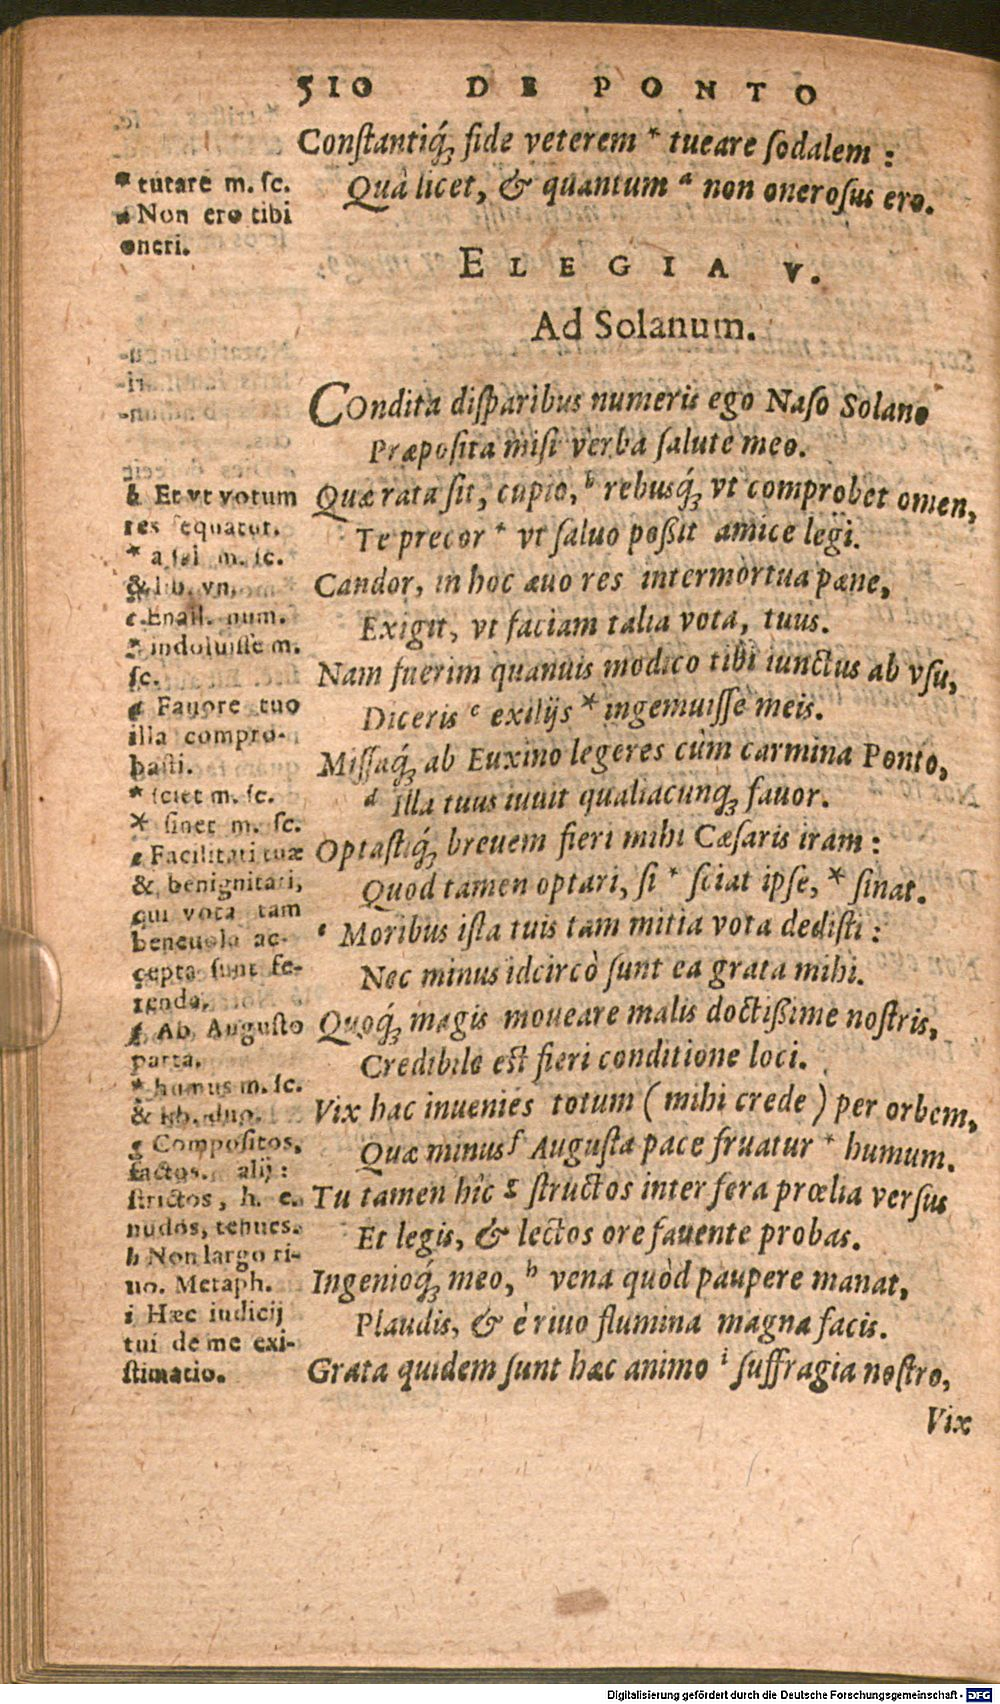 510 DE PONTO
Conſtantiq́; fide veterem * tueare ſodalem :
Quà licet, & quantum ᵃ non oneroſus ero.
* tutare m. ſc.
a Non ero tibi
oneri.
ELEGIA V.
Ad Solanum.
COndita diſparibus numeris ego Naſo Solano
Præpoſita miſi verba ſalute meo.
Quæ rata ſit, cupio, ᵇ rebusq́; vt comprobet omen,
Te precor * vt ſaluo poßit amice legi.
Candor, in hoc æuo res intermortua pæne,
Exigit, vt faciam talia vota, tuus.
Nam fuerim quanuis modico tibi iunctus ab vſu,
Diceris ᶜ exilijs * ingemuiſſe meis.
Miſſaq́; ab Euxino legeres cùm carmina Ponto,
ᵈ illa tuus iuuit qualiacunq; fauor.
Optaſtiq́; breuem fieri mihi Cæſaris iram :
Quod tamen optari, ſi * ſciat ipſe, * ſinat.
ᵉ Moribus iſta tuis tam mitia vota dediſti :
Nec minus idcircò ſunt ea grata mihi.
Quoq́; magis moueare malis doctißime noſtris,
Credibile eſt fieri conditione loci.
Vix hac inuenies totum ( mihi crede ) per orbem,
Quæ minus ᶠ Auguſta pace fruatur * humum.
Tu tamen hîc ᵍ ſtructos inter fera prœlia verſus
Et legis, & lectos ore fauente probas.
Ingenioq́; meo, ʰ vena quòd paupere manat,
Plaudis, & è riuo flumina magna facis.
Grata quidem ſunt hæc animo ⁱ ſuffragia noſtro,
Vix
b Et vt votum
res ſequatur.
* a ſal m. ſc.
& lib. vn.
c Enall. num.
* indoluiſſe m.
ſc.
d Fauore tuo
illa compro-
baſti.
* ſciet m. ſc.
* ſinet m. ſc.
e Facilitati tuæ
& benignitati,
qui vota tam
beneuola ac-
cepta ſunt fe-
renda.
f Ab Auguſto
parta.
* humus m. ſc.
& lib. duo.
g Compoſitos,
factos. alij :
ſtrictos, h. e.
nudos, tenues.
h Non largo ri-
uo. Metaph.
i Hæc iudicij
tui de me exi-
ſtimatio.
Digitalisierung gefördert durch die Deutsche Forschungsgemeinschaft - DFG